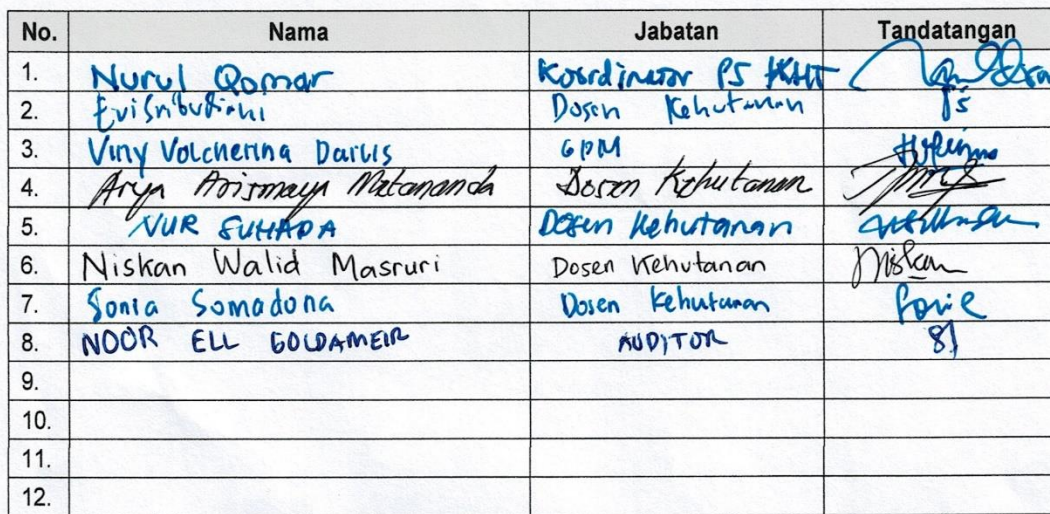 No. Nama Jabatan Tandatangan
1. Nurul Qomar Koordinator PS
2. Dosen Kehutanan
3. Viny Volcherina Darlis GPM
4. Arya Arismaya Metananda Dosen Kehutanan
5. NUR SUHADA Dosen Kehutanan
6. Niskan Walid Masruri Dosen Kehutanan Niskan
7. Sonia Somadona Dosen Kehutanan
8. NOOR ELL GOLDAMEIR AUDITOR
9.
10.
11.
12.